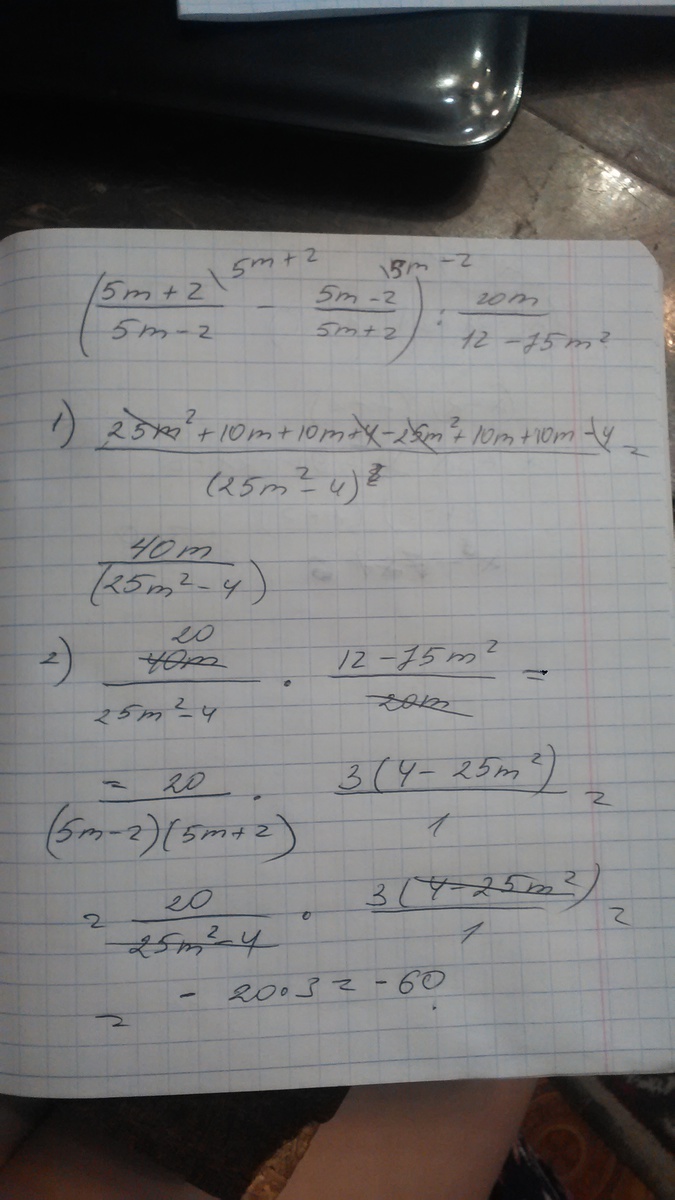 (5m+2 \ 5m+2 / 5m-2 - 5m-2 \ 5m-2 / 5m+2) : 20m / 12-75m²
1) 25m²+10m+10m+4-25m²+10m+10m-4 / (25m²-4) =
40m / (25m²-4)
2) 20 40m / 25m²-4 · 12-75m² / 20m =
= 20 / (5m-2)(5m+2) · 3(4-25m²) / 1 =
= 20 / 25m²-4 · 3(4-25m²) / 1 =
= - 20·3 = -60